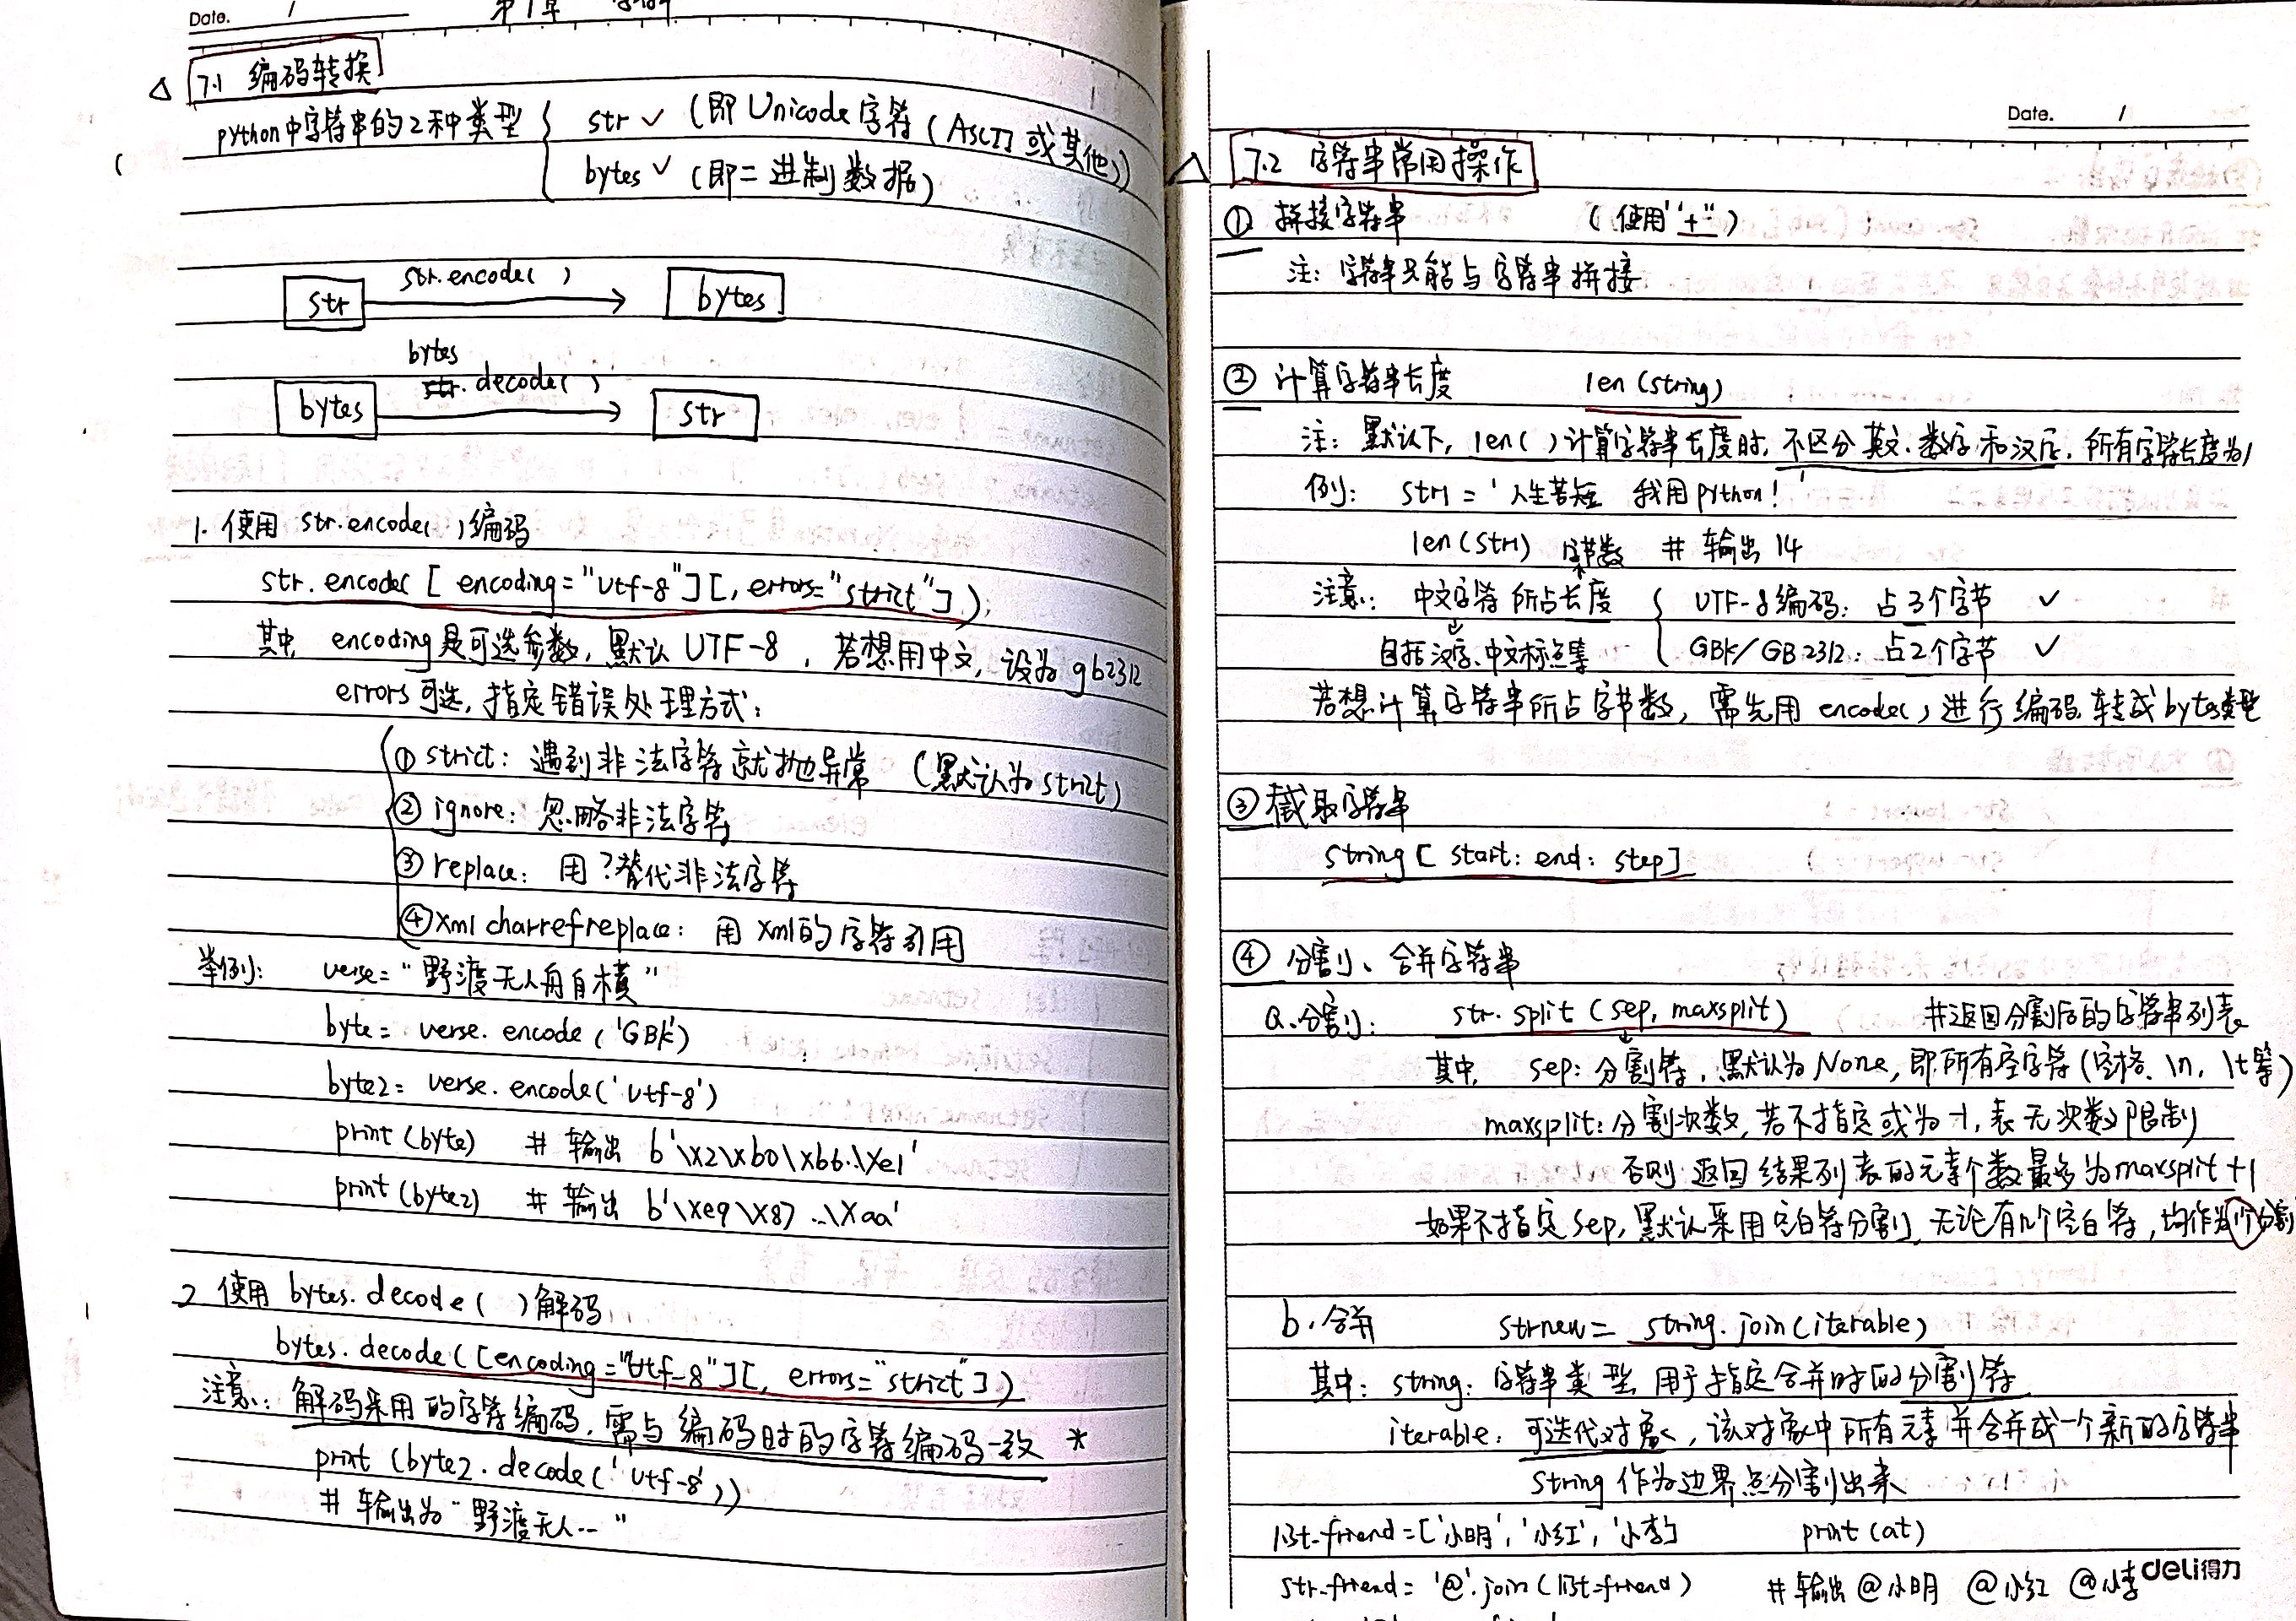 Date. /
第7章
△ 7.1 编码转换
python中字符串的2种类型
str ✓ (即Unicode字符(ASCII或其他))
bytes ✓ (即二进制数据)
str
str.encode( )
bytes
bytes
bytes
str. decode( )
str
1. 使用 str.encode( )编码
str.encode( [ encoding="utf-8"][, errors="strict"] );
其中 encoding是可选参数, 默认 UTF-8 , 若想用中文, 设为gb2312
errors可选, 指定错误处理方式:
① strict: 遇到非法字符就抛异常 (默认为strict)
② ignore: 忽略非法字符
③ replace: 用?替代非法字符
④ xmlcharrefreplace: 用xml的字符引用
举例: verse="野渡无人舟自横"
byte = verse. encode ('GBK')
byte2 = verse. encode('utf-8')
print (byte) # 输出 b'\x2\xb0\xb6..\xe1'
print (byte2) # 输出 b'\xe9\x87 ..\xaa'
2 使用 bytes. decode( )解码
bytes. decode ([encoding="utf-8"][, errors="strict"])
注意: 解码采用的字符编码, 需与编码时的字符编码一致 *
print (byte2. decode('utf-8'))
# 输出为 "野渡无人..."
Date. /
△ 7.2 字符串常用操作
① 拼接字符串 (使用"+")
注: 字符串只能与字符串拼接
② 计算字符串长度 len (string)
注: 默认下, len( )计算字符串长度时, 不区分英文、数字和汉字, 所有字符长度为1
例: str1 = '人生苦短 我用python!'
len(str1) # 输出 14
字节数
注意: 中文字符所占长度
UTF-8编码: 占3个字节 ✓
包括汉字、中文标点等
GBK/GB2312: 占2个字节 ✓
若想计算字符串所占字节数, 需先用 encode( )进行编码转成bytes类型
③ 截取字符串
string [ start: end: step]
④ 分割、合并字符串
a.分割: str. split (sep, maxsplit) #返回分割后的字符串列表
其中, sep: 分割符, 默认为None, 即所有空字符(空格、\n, \t等)
maxsplit: 分割次数, 若不指定或为-1, 表无次数限制
否则返回结果列表的元素个数最多为maxsplit+1
如果不指定sep, 默认采用空白符分割, 无论有几个空白符, 均作为1个分割
b. 合并 strnew = string. join(iterable)
其中: string: 字符串类型 用于指定合并时的分割符
iterable: 可迭代对象, 该对象中所有元素并合并成一个新的字符串
string作为边界点分割出来
list-friend = ['小明', '小红', '小李'] print (at)
str-friend = '@'.join (list-friend) #输出 @小明 @小红 @小李
deli得力